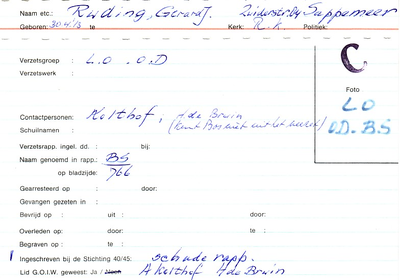 Naam etc.: Ruding, Gerard J. Zuiderstr. 84 Sappemeer
Geboren: 30.4.13 te Kerk: R.K. Politiek:
C.
Verzetsgroep : L.O. O.D
Verzetswerk :
Foto
LO
O.D. BS
Contactpersonen: Kolthof, H de Bruin
Schuilnamen : (kent Bos niet uit het verzet)
Verzetsrapp. ingel. dd. : bij:
Naam genoemd in rapp.: BS
op bladzijde: 766
Gearresteerd op : door:
Gevangen gezeten in :
Bevrijd op : uit : door:
Overleden op: door: te:
Begraven op : te:
Ingeschreven bij de Stichting 40/45: schade rapp.
Lid G.O.I.W. geweest: Ja / Neen A Kolthof H de Bruin